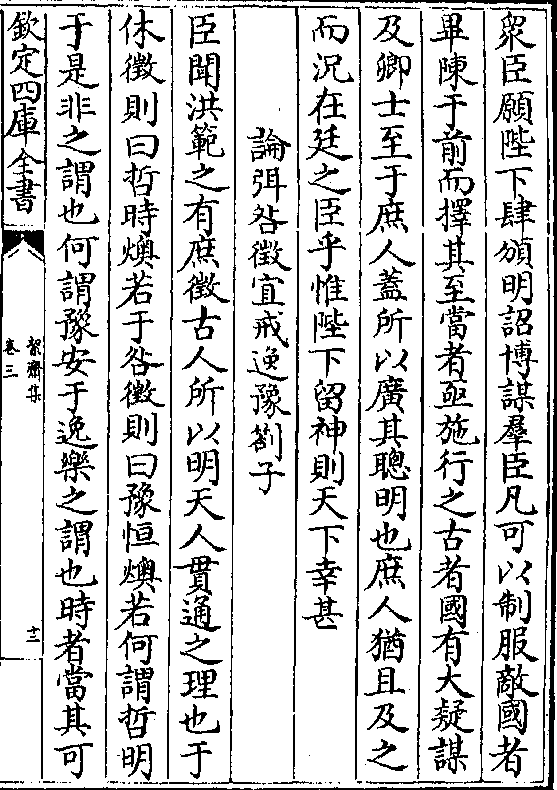 衆臣願陛下肆頒明詔博謀羣臣凡可以制服敵國者
畢陳于前而擇其至當者亟施行之古者國有大疑謀
及卿士至于庶人蓋所以廣其聰明也庶人猶且及之
而況在廷之臣乎惟陛下留神則天下幸甚
論弭咎徵宜戒逸豫劄子
臣聞洪範之有庶徵古人所以明天人貫通之理也于
休徵則曰哲時燠若于咎徵則曰豫恒燠若何謂哲明
于是非之謂也何謂豫安于逸樂之謂也時者當其可
欽定四庫全書
絜齋集
卷三
十三